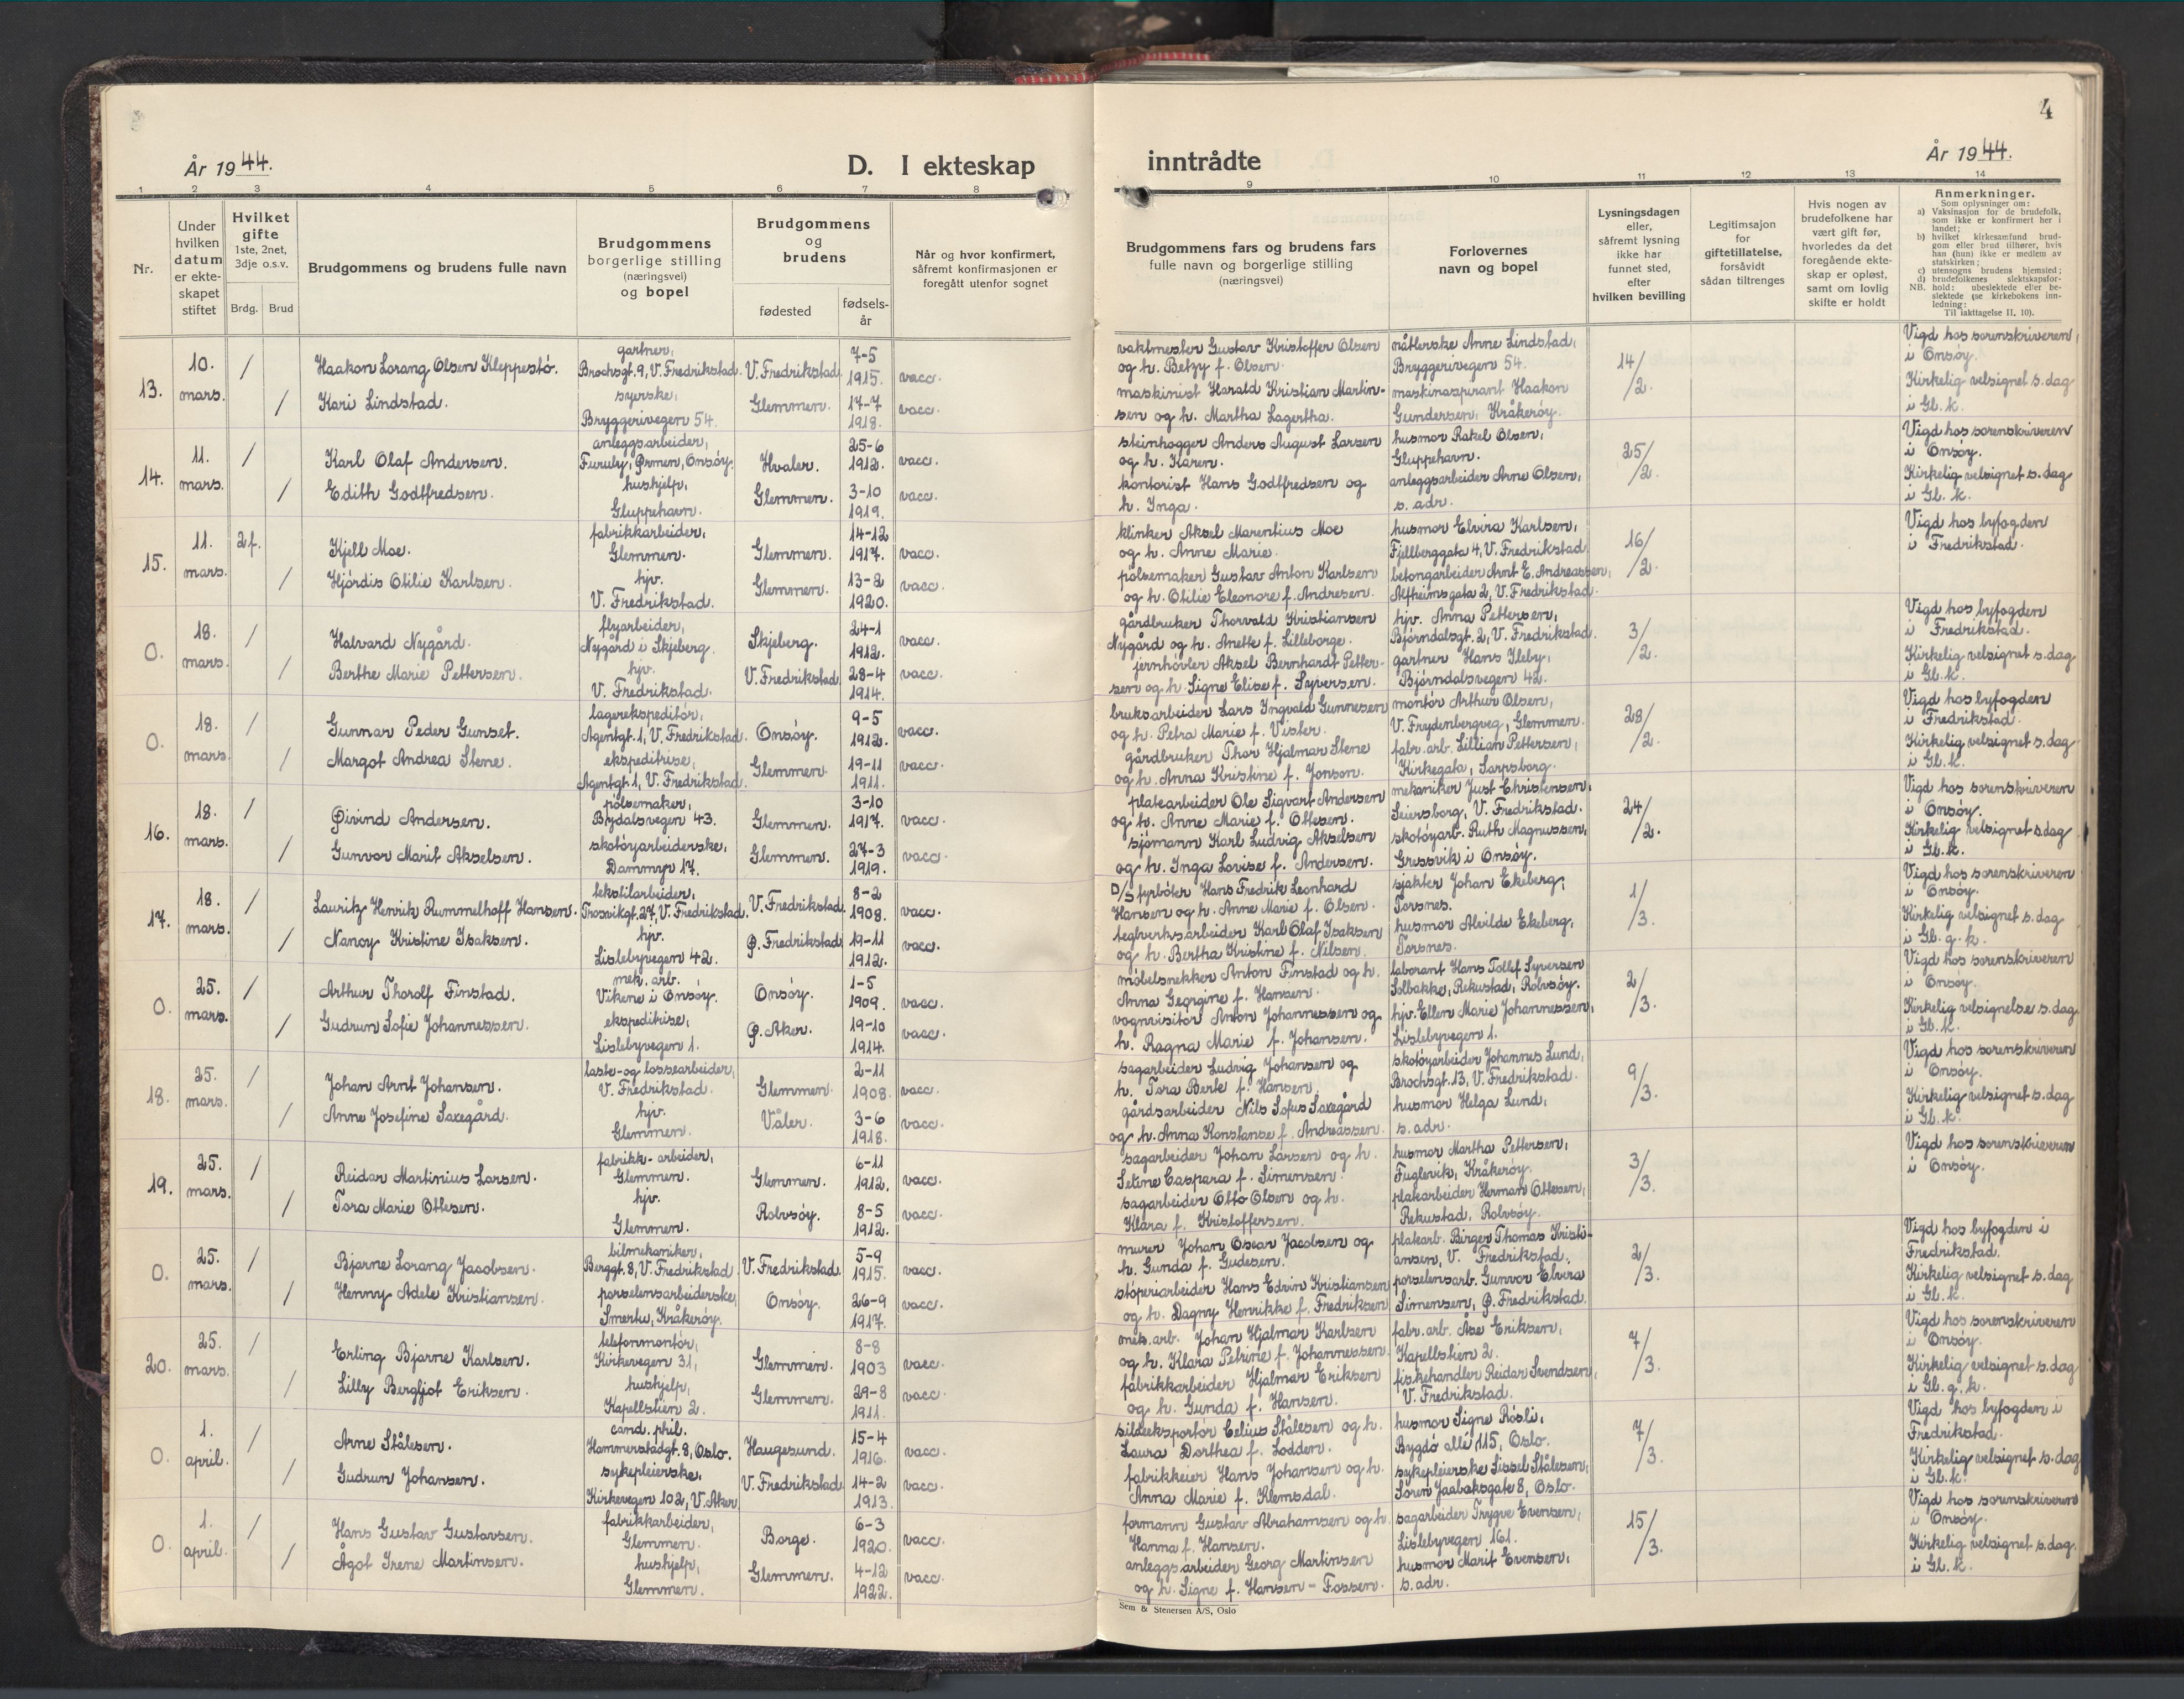 4
År 1944.
D. I ekteskap
inntrådte
År 1944.
1 2 3 4 5 6 7 8
9 10 11 12 13 14
Nr.
Under hvilken datum er ekte-skapet stiftet
Hvilket gifte
1ste, 2net, 3dje o.s.v.
Brdg. Brud
Brudgommens og brudens fulle navn
Brudgommens borgerlige stilling (næringsvei) og bopel
Brudgommens og brudens
fødested
fødsels-år
Når og hvor konfirmert, såfremt konfirmasjonen er foregått utenfor sognet
Brudgommens fars og brudens fars fulle navn og borgerlige stilling (næringsvei)
Forlovernes navn og bopel
Lysningsdagen eller, såfremt lysning ikke har funnet sted, efter hvilken bevilling
Legitimsajon for giftetillatelse, forsåvidt sådan tiltrenges
Hvis nogen av brudefolkene har vært gift før, hvorledes da det foregående ekte-skap er opløst, samt om lovlig skifte er holdt
Anmerkninger.
Som oplysninger om:
a) Vaksinasjon for de brudefolk, som ikke er konfirmert her i landet;
b) hvilket kirkesamfund brud-gom eller brud tilhører, hvis han (hun) ikke er medlem av statskirken;
c) utensogns brudens hjemsted;
d) brudefolkenes slektskapsfor-hold: ubeslektede eller be-slektede (se kirkebokens inn-ledning:
NB.
Til iakttagelse II, 10).
13. 10. mars. / /
Haakon Lorang Olsen Kleppestö.
Kari Lindstad.
gartner,
Brochsgt. 9, V. Fredrikstad.
syerske,
Bryggerivegen 54.
V. Fredrikstad 7-5 1915. vacc.
Glemmen. 17-7 1918. vacc.
vaktmester Gustav Kristoffer Olsen
og h. Betzy f. Olsen.
maskinist Harald Kristian Martin-
sen og h. Martha Lagertha.
nåtlerske Anne Lindstad,
Bryggerivegen 54.
maskinaspirant Haakon
Gundersen, Kråkeröy.
14/2.
Vigd hos sorenskriveren
i Onsöy.
Kirkelig velsignet s. dag
i Gl. k.
14. 11. mars. / /
Karl Olaf Andersen.
Edith Godtfredsen.
anleggsarbeider,
Furuly, Ørmen, Onsöy.
hushjelp,
Gluppehavn.
Hvaler. 25-6 1912. vacc.
Glemmen. 3-10 1919. vacc.
steinhogger Anders August Larsen
og h. Karen.
kontorist Hans Godtfredsen og
h. Inga.
husmor Rakel Olsen,
Gluppehavn.
anleggsarbeider Arne Olsen,
s. adr.
25/2.
Vigd hos sorenskriveren
i Onsöy.
Kirkelig velsignet s. dag
i Gl. k.
15. 11. mars. 2f. /
Kjell Moe.
Hjördis Otilie Karlsen.
fabrikkarbeider,
Glemmen.
hjv.
V. Fredrikstad.
Glemmen. 14-12 1917. vacc.
Glemmen. 13-2 1920. vacc.
klinker Aksel Marentius Moe
og h. Anne Marie.
pölsemaker Gustav Anton Karlsen
og h. Otilie Eleonore f. Andresen.
husmor Elvira Karlsen,
Fjellberggata 4, V. Fredrikstad.
betongarbeider Arnt E. Andreassen,
Alfheimsgata 2, V. Fredrikstad.
16/2.
Vigd hos byfogden
i Fredrikstad.
0. 18. mars. / /
Halvard Nygård.
Berthe Marie Pettersen.
flyarbeider,
Nygård i Skjeberg.
hjv.
V. Fredrikstad.
Skjeberg. 24-1 1912. vacc.
V. Fredrikstad 28-4 1914. vacc.
gårdbruker Thorvald Kristiansen
Nygård og h. Anette f. Lilleborge.
jernhövler Aksel Bernhardt Petter-
sen og h. Signe Elise f. Syversen.
hjv. Anna Pettersen,
Björndalsgt. 2, V. Fredrikstad.
gartner Hans Ileby,
Björndalsvegen 42.
3/2.
Vigd hos byfogden
i Fredrikstad.
Kirkelig velsignet s. dag
i Gl. k.
0. 18. mars. / /
Gunnar Peder Gunset.
Margot Andrea Stene.
lagerekspeditör,
Agentgt. 1, V. Fredrikstad.
ekspeditrise,
Agentgt. 1, V. Fredrikstad.
Onsöy. 9-5 1912. vacc.
Glemmen. 19-11 1911. vacc.
bruksarbeider Lars Ingvald Gunnesen
og h. Petra Marie f. Vister.
gårdbruker Thor Hjalmar Stene
og h. Anna Kristine f. Jonson.
montör Arthur Olsen,
V. Freydenbergveg, Glemmen.
fabr. arb. Lillian Pettersen,
Kirkegata, Sarpsborg.
28/2.
Vigd hos byfogden
i Fredrikstad.
Kirkelig velsignet s. dag
i Gl. k.
16. 18. mars. / /
Øivind Andersen.
Gunvor Marit Akselsen.
pölsemaker,
Brydalsvegen 43.
skotöyarbeiderske,
Dammyr 17.
Glemmen. 3-10 1917. vacc.
Glemmen. 27-3 1919. vacc.
platearbeider Ole Sigvart Andersen
og h. Anne Marie f. Ottesen.
sjömann Karl Ludvig Akselsen
og h. Inga Lovise f. Andersen.
mekaniker Just Christensen,
Seiersborg, V. Fredrikstad.
skotöyarb. Ruth Magnussen,
Gressvik i Onsöy.
24/2.
Vigd hos sorenskriveren
i Onsöy.
Kirkelig velsignet s.dag
i Gl. k.
17. 18. mars. / /
Lauritz Henrik Rummelhoff Hansen.
Nancy Kristine Isaksen.
tekstilarbeider,
Trosvikgt. 27, V. Fredrikstad.
hjv.
Lislebyvegen 42.
V. Fredrikstad 8-2 1908. vacc.
Ø. Fredrikstad 19-11 1912. vacc.
D/S fyrböter Hans Fredrik Leonhard
Hansen og h. Anne Marie f. Olsen.
teglverksarbeider Karl Olaf Isaksen
og h. Bertha Kristine f. Nilsen.
sjakter Johan Ekeberg,
Torsnes.
husmor Alvilde Ekeberg,
Torsnes.
1/3.
Vigd hos sorenskriveren
i Onsöy.
Kirkelig velsignet s. dag
i Gl. g. k.
0. 25. mars. / /
Arthur Thorolf Finstad.
Gudrun Sofie Johannessen.
mek. arb.
Vikene i Onsöy.
ekspeditrise,
Lislebyvegen 1.
Onsöy. 1-5 1909. vacc.
Ø. Aker. 19-10 1914. vacc.
möbelsnekker Anton Finstad og h.
Anna Georgine f. Hansen.
vognvisitör Anton Johannessen og
h. Ragna Marie f. Johansen.
laborant Hans Tollef Syversen
Solbakke, Rekustad, Rolvsöy.
hjv. Ellen Marie Johannessen,
Lislebyvegen 1.
2/3.
Vigd hos sorenskriveren
i Onsöy.
Kirkelig velsignelse s. dag
i Gl. k.
18. 25. mars. / /
Johan Arnt Johansen.
Anne Josefine Saxegård.
laste-og lossearbeider,
V. Fredrikstad.
hjv.
Glemmen.
Glemmen. 2-11 1908. vacc.
Våler. 3-6 1918. vacc.
sagarbeider Ludvig Johansen og
h. Tora Berte f. Hansen.
gårdsarbeider Nils Sofus Saxegård
og h. Anna Konstanse f. Andreassen.
skotöyarbeider Johannes Lund,
Brochsgt. 13, V. Fredrikstad.
husmor Helga Lund,
s. adr.
9/3.
Vigd hos sorenskriveren
i Onsöy.
Kirkelig velsignet s. dag
i Gl. k.
19. 25. mars. / /
Reidar Martinius Larsen.
Tora Marie Ottesen.
fabrikk-arbeider,
Glemmen.
hjv.
Glemmen.
Glemmen. 6-11 1912. vacc.
Rolvsöy. 8-5 1912. vacc.
sagarbeider Johan Larsen og h.
Seline Caspara f. Simensen.
sagarbeider Otto Olsen og h.
Klara f. Kristoffersen.
husmor Martha Pettersen,
Fuglevik, Kråkeröy.
platearbeider Herman Ottesen,
Rekustad, Rolvsöy.
3/3.
Vigd hos sorenskriveren
i Onsöy.
0. 25. mars. / /
Bjarne Lorang Jacobsen.
Henny Adele Kristiansen.
bilmekaniker,
Berggt. 8, V. Fredrikstad
porselensarbeiderske,
Smertu, Kråkeröy.
V. Fredrikstad 5-9 1915. vacc.
Onsöy. 26-9 1917. vacc.
murer Johan Oscar Jacobsen og
h. Gunda f. Gudesen.
stöperiarbeider Hans Edvin Kristiansen
og h. Dagny Henrikke f. Fredriksen
platearb. Birger Thomas Kristi-
ansen, V. Fredrikstad.
porselensarb. Gunvor Elvira
Simensen, Ø. Fredrikstad.
2/3.
Vigd hos byfogden i
Fredrikstad.
Kirkelig velsignet s. dag
i Gl. k.
20. 25. mars. / /
Erling Bjarne Karlsen.
Lilly Bergljot Eriksen.
telefonmontör,
Kirkevegen 31,
hushjelp,
Kapellstien 2.
Glemmen. 8-8 1903 vacc.
Glemmen. 29-8 1911. vacc.
mek. arb. Johan Hjalmar Karlsen
og h. Klara Petrine f. Johannessen.
fabrikkarbeider Hjalmar Eriksen
og h. Gunda f. Hansen.
fabr. arb. Åse Eriksen,
Kapellstien 2.
fiskehandler Reidar Svendsen,
V. Fredrikstad.
7/3.
Vigd hos sorenskriveren
i Onsöy.
Kirkelig velsignet s. dag
i Gl. g. k.
0. 1. april. / /
Arne Stålesen.
Gudrun Johansen.
cand. phil.
Hammerstadgt. 8, Oslo.
sykepleierske,
Kirkevegen 102, V. Aker
Haugesund. 15-4 1916. vacc.
V. Fredrikstad 14-2 1913. vacc.
sildeeksportör Celius Stålesen og h.
Laura Dorthea f. Lodden.
fabrikkeier Hans Johansen og h.
Anna Marie f. Klemsdal.
husmor Signe Rösli,
Bygdö allé 115, Oslo.
sykepleierske Sissel Stålesen,
Sören Jaabæksgate 8, Oslo.
7/3.
Vigd hos byfogden i
Fredrikstad.
Kirkelig velsignet s. dag
i Gl. k.
0. 1. april. / /
Hans Gustav Gustavsen.
Ågot Irene Martinsen.
fabrikkarbeider,
Glemmen.
hushjelp,
Glemmen.
Borge. 6-3 1920. vacc.
Glemmen. 4-12 1922. vacc.
formann Gustav Abrahamsen og h.
Hanna f. Hansen.
anleggsarbeider Georg Martinsen
og h. Signe f. Hansen - Fossen.
sagarbeider Trygve Evensen,
Lislebyvegen 161.
husmor Marit Evensen,
s. adr.
15/3.
Vigd hos sorenskriveren
i Onsöy.
Kirkelig velsignet s. dag.
i Gl. k.
Sem & Stenersen A/S, Oslo